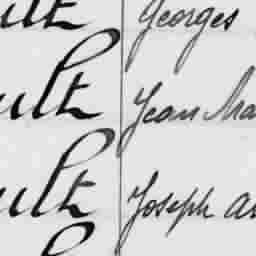 ult Georges
ult Jean Ma
ult Joseph an